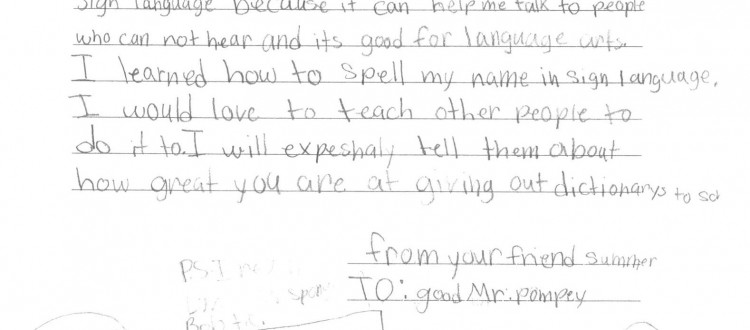 sign language because it can help me talk to people
who can not hear and its good for language arts.
I learned how to spell my name in sign language.
I would love to teach other people to
do it to. I will expeshaly tell them about
how great you are at giving out dictionarys to
from your friend summer
PS I
TO: good Mr. pompey